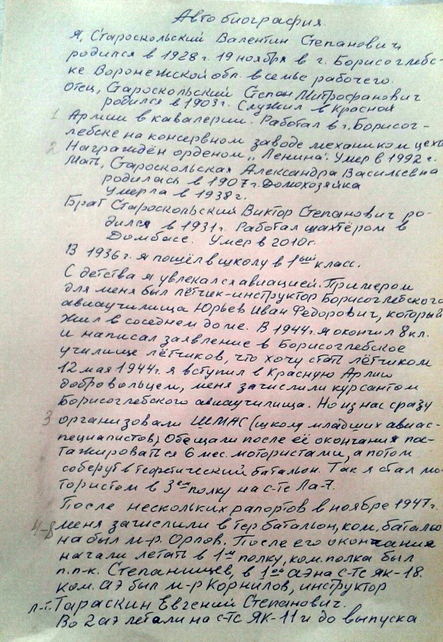 Автобиография.
Я, Староскольский Валентин Степанович,
родился в 1928 г. 19 ноября в г. Борисоглебс-
ке Воронежской обл. в семье рабочего.
Отец, Староскольский Степан Митрофанович
родился в 1903г. Служил в Красной
1. Армии в кавалерии. Работал в г. Борисог-
лебске на консервном заводе механиком цеха
2. Награждён орденом „Ленина". Умер в 1992 г.
Мать, Староскольская Александра Васильевна
родилась в 1907г. Домохозяйка
Умерла в 1938г.
Брат Староскольский Виктор Степанович ро-
дился в 1931г. Работал шахтёром в
Домбасе. Умер в 2010г.
В 1936г. я пошёл в школу в 1ый класс.
С детства я увлекался авиацией. Примером
для меня был лётчик-инструктор Борисоглебского
авиаучилища Юрьев Иван Федорович, который
жил в соседнем доме. В 1944г. я окончил 8 кл.
и написал заявление в Борисоглебское
училище лётчиков, что хочу стать лётчиком
12 мая 1944г. я вступил в Красную Армию
добровольцем, меня зачислили курсантом
Борисоглебского авиаучилища. Но из нас сразу
3 организовали ШМАС (школу младших авиас-
пециалистов) Обещали после её окончания пос-
тажироваться 6 мес. мотористами, а потом
соберут в теоретический батальон. Так я стал мо-
тористом в 3ем полку на с-те Ла-7.
После нескольких рапортов в ноябре 1947г.
меня зачислили в тербатальон, ком. баталь-
на был м-р. Орлов. После его окончания
начали летать в 1м полку, ком. полка был
п.п-к. Степанищев, в 1ой аэ на с-те Як-18.
ком. аэ был м-р Корнилов, инструктор
л-т. Тараскин Евгений Степанович.
Во 2 аэ летали на с-те Як-11 и до выпуска